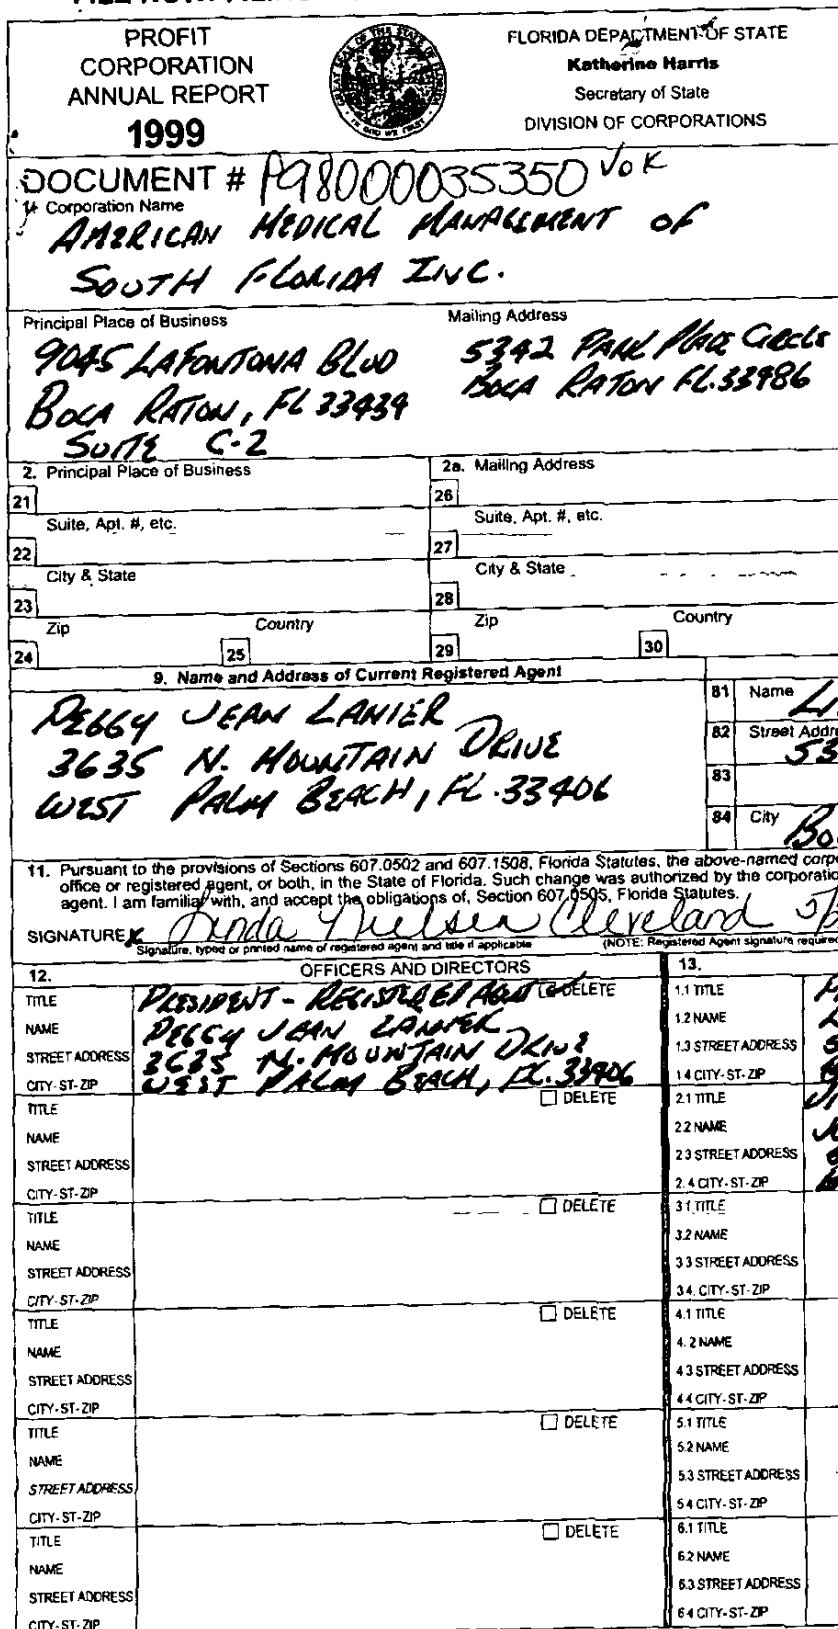 PROFIT
CORPORATION
ANNUAL REPORT
1999
FLORIDA DEPARTMENT OF STATE
Katherine Harris
Secretary of State
DIVISION OF CORPORATIONS
DOCUMENT # P98000035350 VOK
1. Corporation Name
AMERICAN MEDICAL MANAGEMENT OF
SOUTH FLORIDA INC.
Principal Place of Business
9045 LAFONTONA BLVD
BOCA RATON, FL 33434
SUITE C-2
Mailing Address
5342 PARK PLACE CIRCLE
BOCA RATON FL. 33486
2. Principal Place of Business
2a. Mailing Address
21
26
Suite, Apt. #, etc.
Suite, Apt. #, etc.
22
27
City & State
City & State
23
28
Zip Country
Zip Country
24 25
29 30
9. Name and Address of Current Registered Agent
PEGGY JEAN LANIER
3635 N. MOUNTAIN DRIVE
WEST PALM BEACH, FL. 33406
81 Name LI
82 Street Addre
53
83
84 City Bo
11. Pursuant to the provisions of Sections 607.0502 and 607.1508, Florida Statutes, the above-named corpo
office or registered agent, or both, in the State of Florida. Such change was authorized by the corporatio
agent. I am familiar with, and accept the obligations of, Section 607.0505, Florida Statutes.
SIGNATURE X Linda Nielsen Cleveland 5/
Signature, typed or printed name of registered agent and title if applicable (NOTE: Registered Agent signature required
12. OFFICERS AND DIRECTORS 13.
TITLE PRESIDENT - REGISTERED AGENT DELETE
NAME PEGGY JEAN LANIER
STREET ADDRESS 3635 N. MOUNTAIN DRIVE
CITY-ST-ZIP WEST PALM BEACH, FL. 33406
1.1 TITLE
1.2 NAME
1.3 STREET ADDRESS
1.4 CITY-ST-ZIP
TITLE DELETE
NAME
STREET ADDRESS
CITY-ST-ZIP
2.1 TITLE
2.2 NAME
2.3 STREET ADDRESS
2.4 CITY-ST-ZIP
TITLE DELETE
NAME
STREET ADDRESS
CITY-ST-ZIP
3.1 TITLE
3.2 NAME
3.3 STREET ADDRESS
3.4. CITY-ST-ZIP
TITLE DELETE
NAME
STREET ADDRESS
CITY-ST-ZIP
4.1 TITLE
4.2 NAME
4.3 STREET ADDRESS
4.4 CITY-ST-ZIP
TITLE DELETE
NAME
STREET ADDRESS
CITY-ST-ZIP
5.1 TITLE
5.2 NAME
5.3 STREET ADDRESS
5.4 CITY-ST-ZIP
TITLE DELETE
NAME
STREET ADDRESS
CITY-ST-ZIP
6.1 TITLE
6.2 NAME
6.3 STREET ADDRESS
6.4 CITY-ST-ZIP